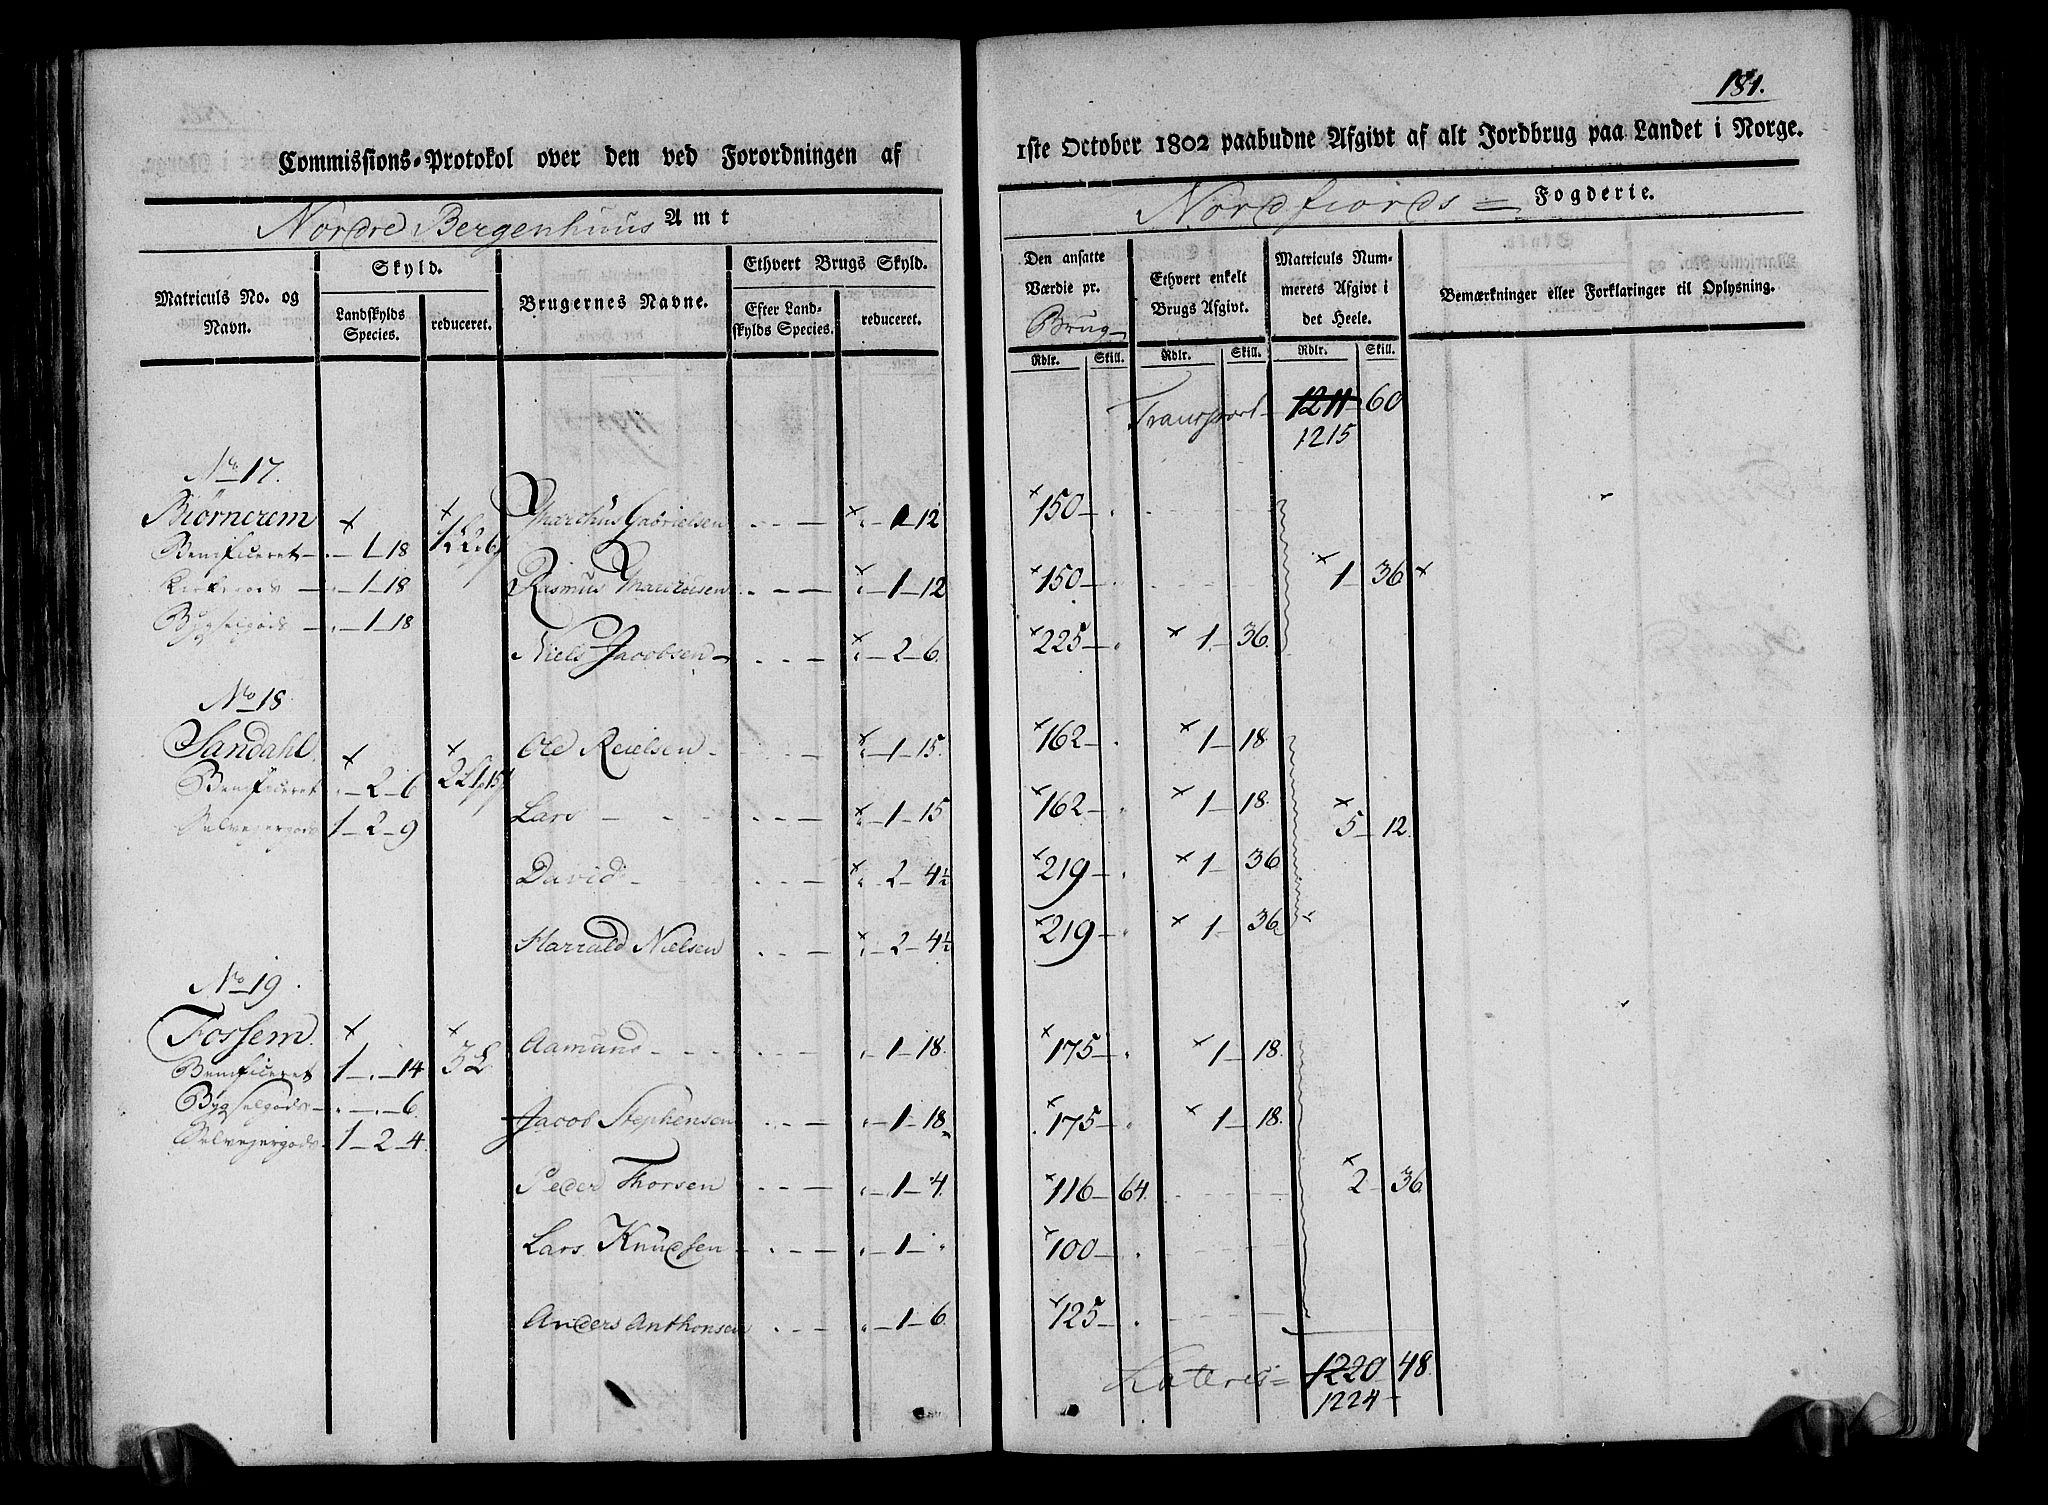 181.
Commissions-Protokol over den ved Forordningen af
1ste October 1802 paabudne Afgivt af alt Jordbrug paa Landet i Norge.
Nordre Bergenhuus Amt
Nordfiords = Fogderie.
Matriculs No. og Navn.
Skyld.
Landskylds Species.
reduceret.
Brugernes Navne.
Ethvert Brugs Skyld.
Efter Landskylds Species.
reduceret.
Den ansatte Værdie pr. Brug
Rdlr. Skill.
Ethvert enkelt Brugs Afgivt.
Rdlr. Skill.
Matriculs Nummerets Afgivt i det Heele.
Rdlr. Skill.
Bemærkninger eller Forklaringer til Oplysning.
Transport 1211 60
1215
No 17.
Biørnerem
Marchus Gabrielsen - 1 - 12 150
Beneficeret - 1 - 18
Rasmus Marchusen - 1 - 12 150 1 36
- 1 - 18
Bygselgods - 1 - 18
Niels Jacobsen - 2 - 6. 225 1 - 36.
No 18
Sandahl.
Ole Reielsen - 1 - 15. 162 1 - 18
Beneficeret - 2 - 6
Lars - 1 - 15 162 1 - 18. 5 - 12.
Selvejergods 1 - 2 - 9
David - 2 - 4½ 219 1 - 36
Harrald Nielsen - 2 - 4½ 219 1 - 36
No 19.
Fossem.
3 L
Aamund - 1 - 18. 175 1 - 18.
Beneficeret 1 - . - 14
Bygselgods - . - 6.
Jacob Stephensen - 1 - 18 175 1 - 18.
Selvejergods 1 - 2 - 4.
Peder Thorsen - 1 - 4. 116 - 64. 2 - 36
Lars Knudsen - 1 - 100
Anders Anthonsen - 1 - 6. 125
Lateris = 1220 48.
1224